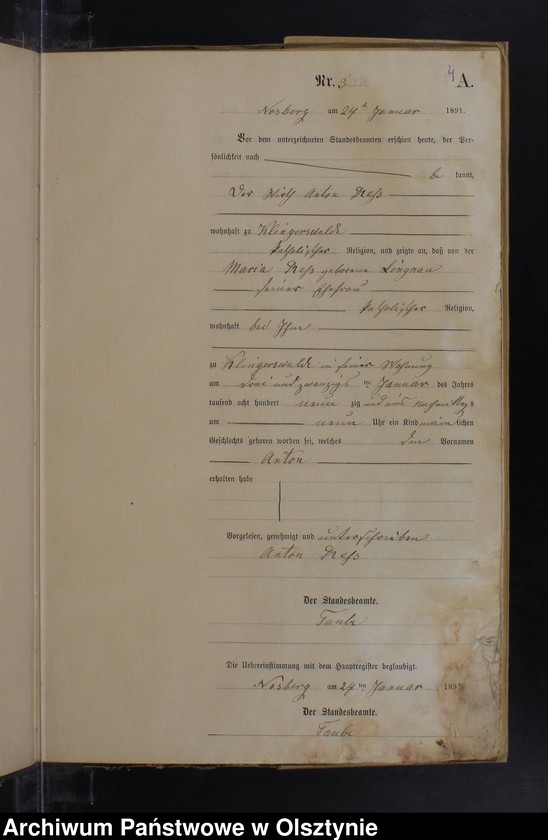 4
Nr. 3 A.
Nosberg am 24 ten Januar 1891.
Vor dem unterzeichneten Standesbeamten erschien heute, der Per-
sönlichkeit nach
be kannt,
Der Wirth Anton Reß
wohnhaft zu Klingerswalde
katholischer Religion, und zeigte an, daß von der
Maria Reß geborene Lingnau
seiner Ehefrau
katholischer Religion,
wohnhaft bei ihm
zu Klingerswalde in seiner Wohnung
am drei und zwanzigs ten Januar des Jahres
tausend acht hundert neun zig und eins nachmittags
um neun Uhr ein Kind männ lichen
Geschlechts geboren worden sei, welches den Vornamen
Anton
erhalten habe
Vorgelesen, genehmigt und unterschrieben
Anton Reß
Der Standesbeamte.
Taube
Die Uebereinstimmung mit dem Hauptregister beglaubigt.
Nosberg am 24 ten Januar 189
Der Standesbeamte.
Taube
Archiwum Państwowe w Olsztynie